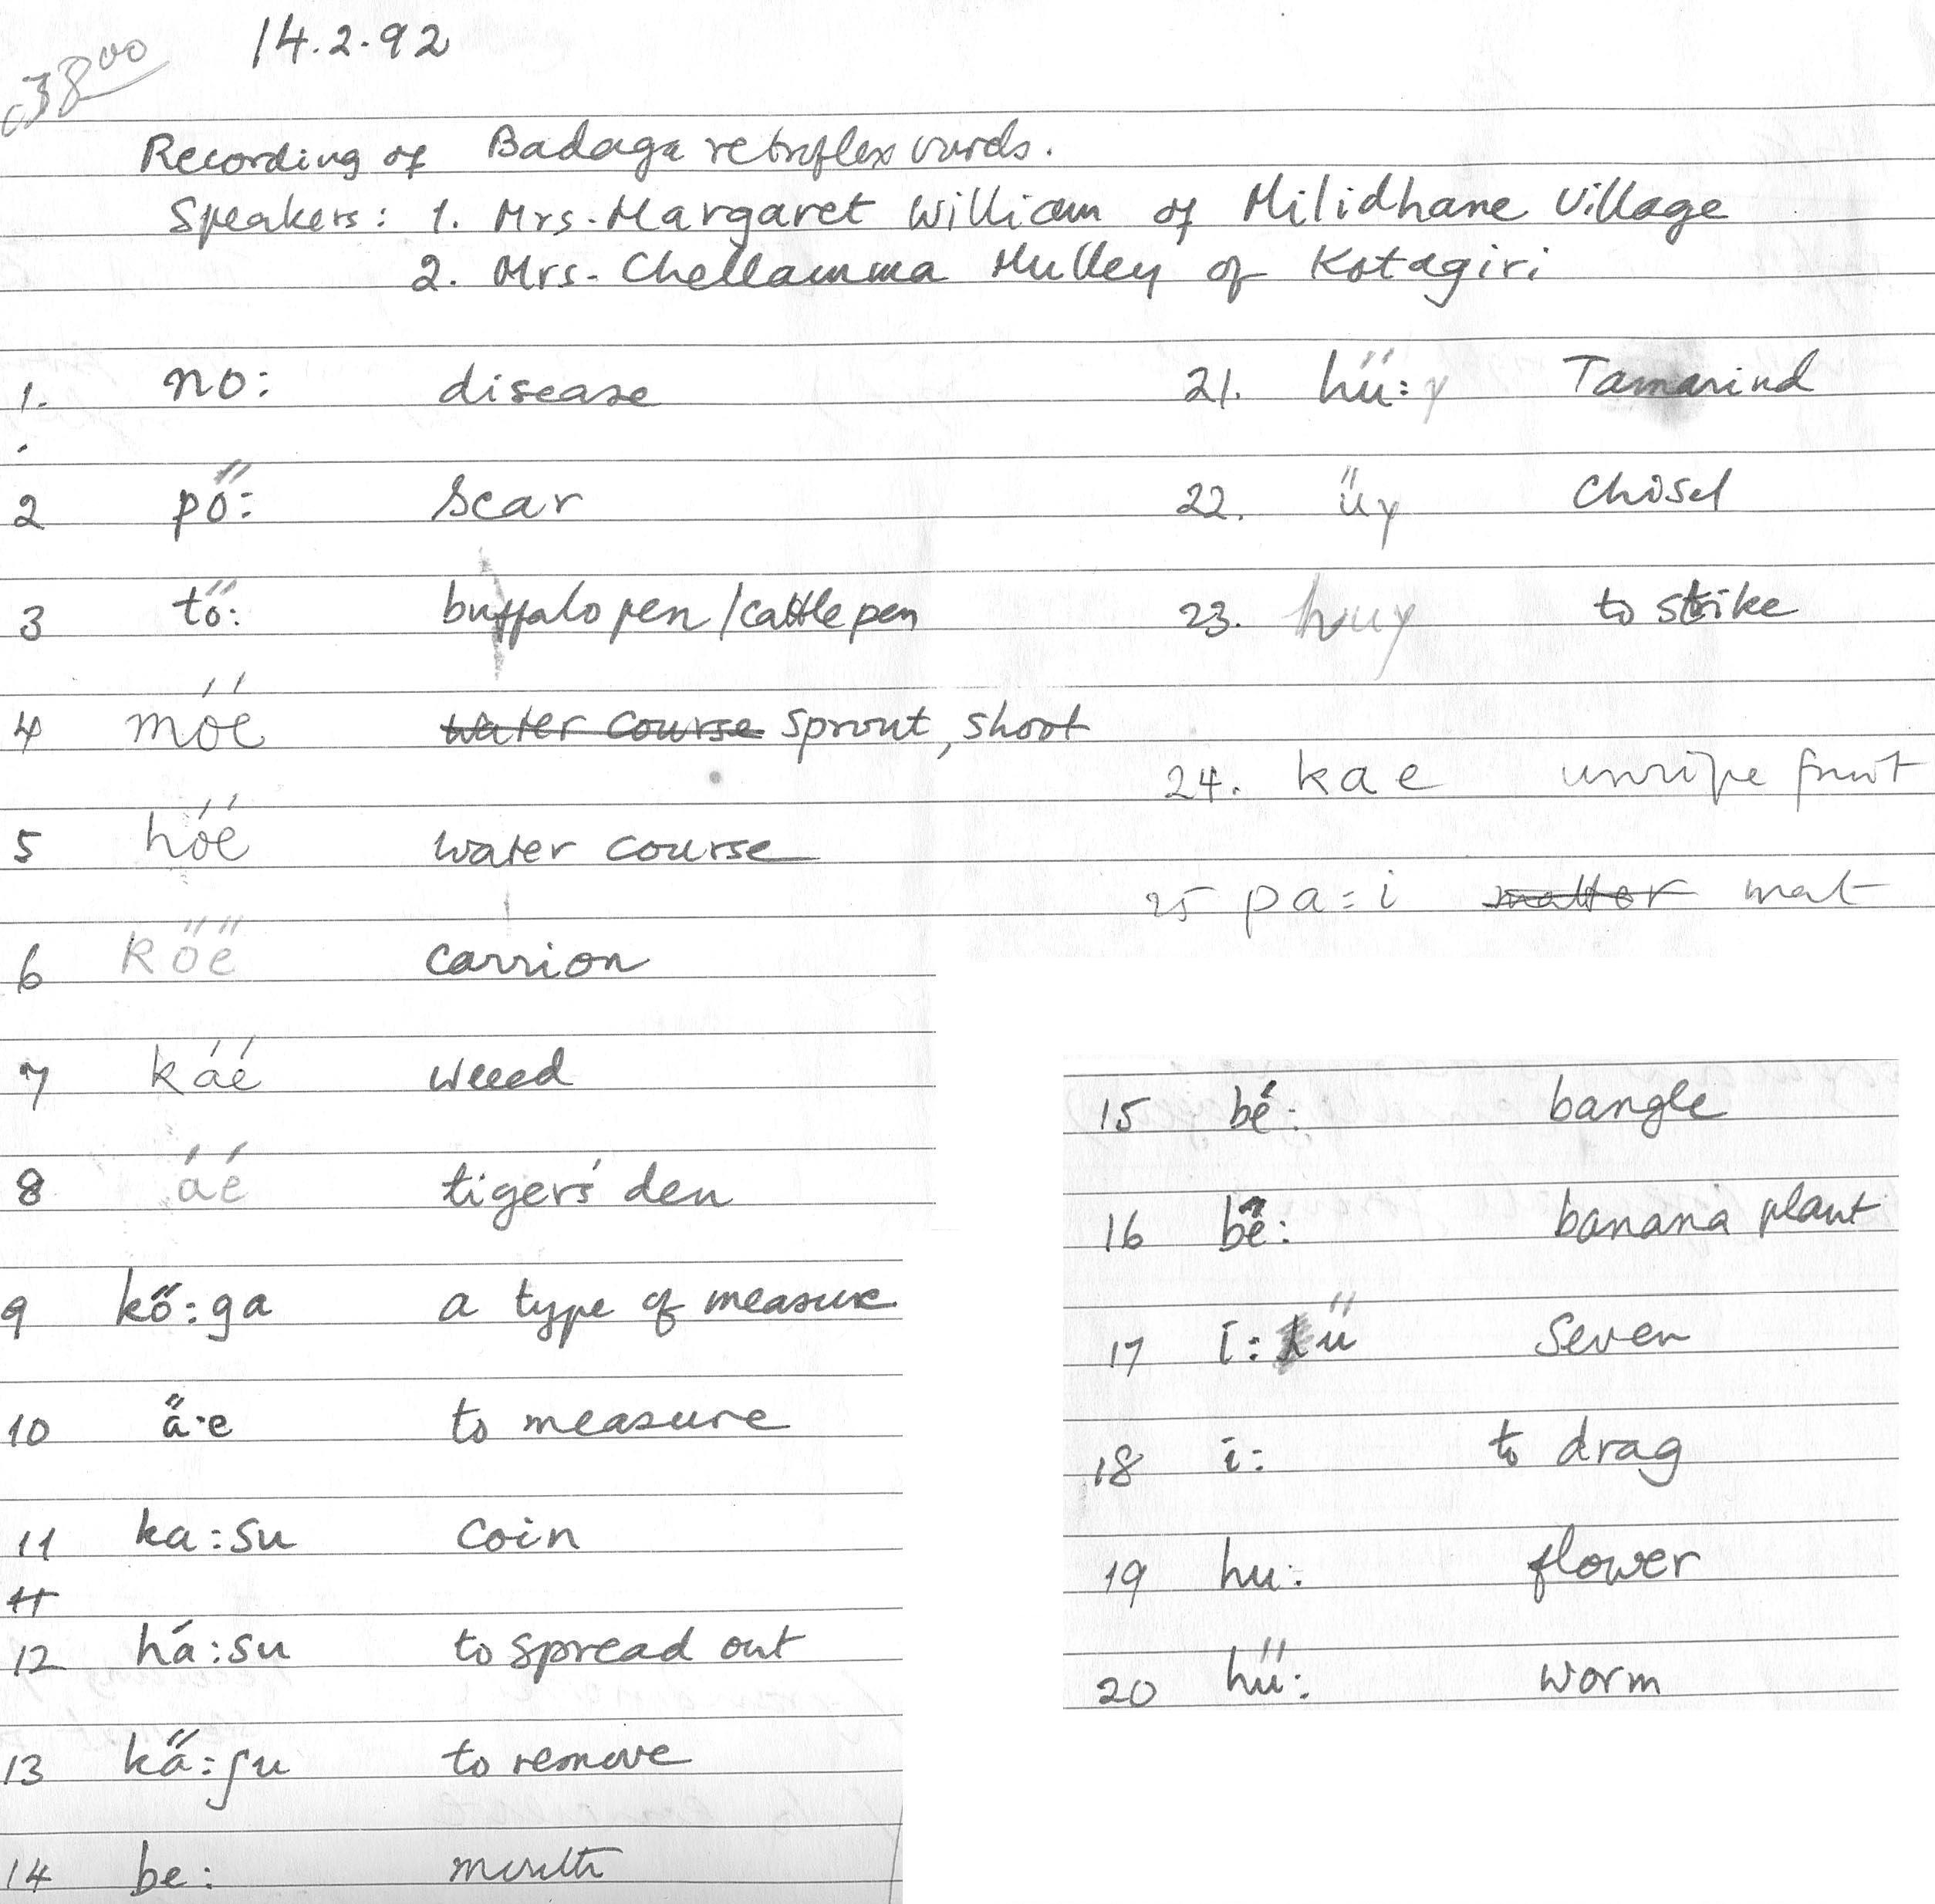 3800
14.2.92
Recording of Badaga retroflex words.
Speakers: 1. Mrs. Margaret William of Milidhane Village
2. Mrs. Chellamma Mulley of Kotagiri
1. no: disease
2 pő: scar
3 tő: buffalo pen/cattle pen
4 móé water course sprout, shoot
5 hóé water course
6 kőe̋ carrion
7 káé weeed
8 áé tiger's den
9 kő:ga a type of measure
10 a̋·e to measure
11 ka:su coin
11
12 há:su to spread out
13 ka̋:ʃu to remove
14 be: mouth
21. hű:y Tamarind
22. űy Chisel
23. huy to strike
24. kae unripe fruit
25 pa:i matter mat
15 bé: bangle
16 be̋: banana plant
17 i: ű Seven
18 i: to drag
19 hu: flower
20 hű: worm